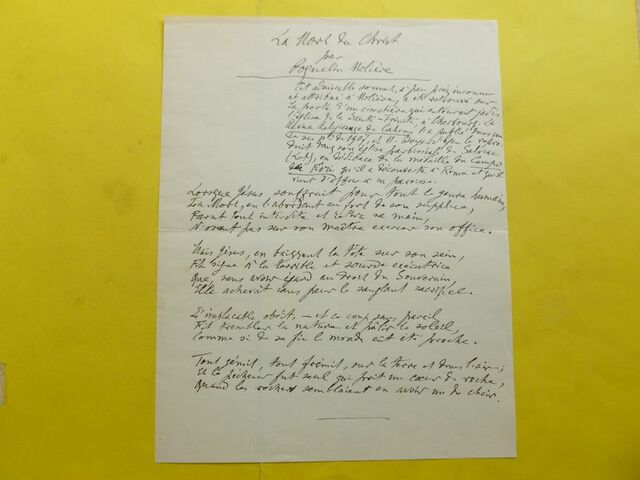 La Mort du Christ
par
Poquelin Molière
Cet admirable sonnet, à peu près inconnu
et attribué à Molière, a été retrouvé sur
la porte d'un cimetière qui entourait jadis
l'église de la Sainte-Trinité, à Cherbourg. La
Revue Religieuse de Cahors l'a publié dans un
de ses nos de 1907, et M. l'a repro-
duit dans son église paroissiale de
(Lot), en dédicace de la médaille du Campo
dei Fiori qu'il a découverte à Rome et qu'il
vient d'offrir à sa paroisse.
Lorsque Jésus souffrait pour tout le genre humain,
La Mort, en l'abordant au fort de son supplice,
Parut tout interdite et retira sa main,
N'osant pas sur son maître exercer son office.
Mais Jésus, en baissant la tête sur son sein,
Fit signe à la terrible et sourde exécutrice
Que, sans avoir égard au droit du Souverain,
Elle achevât sans peur le sanglant sacrifice.
L'implacable obéit, – et ce coup sans pareil
Fit trembler la nature et pâlir le soleil,
Comme si de sa fin le monde eût été proche.
Tout gémit, tout frémit, sur la terre et dans l'air;
Et le pécheur fut seul qui prit un cœur de roche,
Quand les rochers semblaient en avoir un de chair.